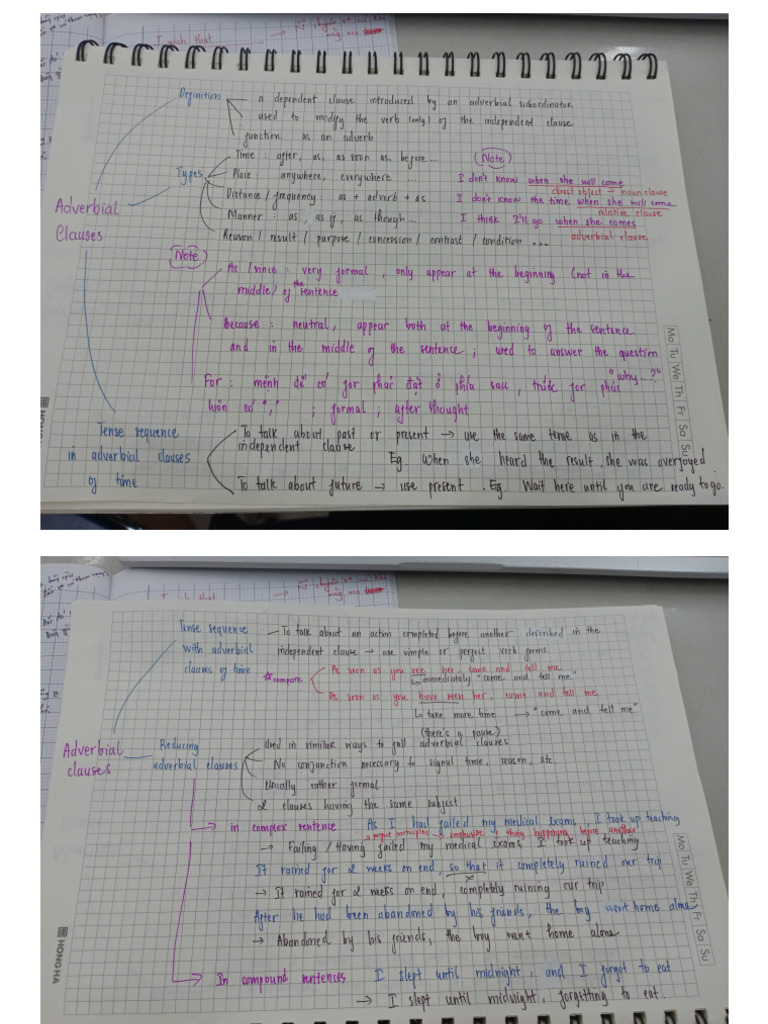 Definition
a dependent clause introduced by an adverbial subordinator
used to modify the verb (only) of the independent clause
function as an adverb
Types
Time : after, as, as soon as, before ...
Place : anywhere, everywhere ...
Distance / frequency : as + adverb + as
Manner : as, as if, as though...
Reason / result / purpose / concession / contrast / condition ...
Note
I don't know when she will come
direct object → noun clause
I don't know the time when she will come
relative clause
I think I'll go when she comes
adverbial clause
Adverbial
Clauses
Note
As / since : very formal, only appear at the beginning (not in the
middle) of the sentence
Because : neutral, appear both at the beginning of the sentence
and in the middle of the sentence ; used to answer the question
"why...?"
For : mệnh đề có for phải đặt ở phía sau, trước for phải
luôn có "," ; formal ; after thought
Tense sequence
in adverbial clauses
of time
To talk about past or present → use the same tense as in the
independent clause
Eg. When she heard the result, she was overjoyed.
To talk about future → use present. Eg. Wait here until you are ready to go.
Mo Tu We Th Fr Sa Su
HONG HA
Tense sequence
with adverbial
clauses of time
To talk about an action completed before another described in the
independent clause → use simple or perfect verb forms
compare
As soon as you see her, come and tell me
immediately "come and tell me"
As soon as you have seen her, come and tell me
take more time → "come and tell me"
(there's a pause)
Adverbial
clauses
Reducing
adverbial clauses
Used in similar ways to full adverbial clauses
No conjunction necessary to signal time, reason, etc
Usually rather formal
2 clauses having the same subject
→ in complex sentence
As I had failed my medical exams, I took up teaching
→ Failing / Having failed my medical exams I took up teaching
It rained for 2 weeks on end, so that it completely ruined our trip
→ It rained for 2 weeks on end, completely ruining our trip
After he had been abandoned by his friends, the boy went home alone
→ Abandoned by his friends, the boy went home alone
→ In compound sentences
I slept until midnight, and I forgot to eat
→ I slept until midnight, forgetting to eat.
Mo Tu We Th Fr Sa Su
HONG HA